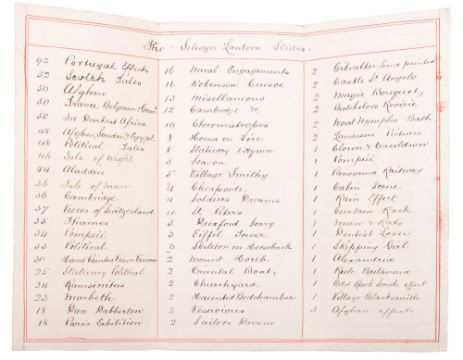 The Selwyn Lantern Slides.
92 Portugal Effects
52 Scotch Tales
50 Afghan
50 France, Belgium &
50 In Darkest Africa
48 Afghan, Soudan, & Egypt.
48 Political Tales
46 Isle of Wight
44 Aladden
36 Isle of Man
36 Cambridge
37 Views of Switzerland
35 Thames
34 Pompeii
33 Political
30 Hand Painted Views
25 Statuary Political
24 Ramsinitus
23 Macbeth
18 Dan Dabberton
18 Paris Exhibition
16 Naval Engagements
16 Robinson Crusoe
13 Miscellaneous
12 Cambridge &c
10 Chromotropes
8 House on Fire
8 Statuary & Hymn
5 Season
5 Village Smithy
4 Cheapside
4 Soldiers Dreams
4 St Peters
3 Ferry
3 Eiffel Tower
3 Skeleton on Horseback
2 Mount Horeb
2 Oriental Boat,
2 Churchyard
2 Haunted Bedchamber
2 Vesuvious
2 Sailors Dream
2 Gibraltar hand painted
2 Castle St Angelo
2 Magic Bouquet,
2 Batchelors Reverie
2 Wood Nymphs Bath
2 Landseer Pictures
2 Clown & Cauldron
1 Pompeii
1 Panorama Railway
1 Cabin Scene
1 Rain Effect
1 Curtain Rack
1 Man & Rats
1 Dentist Lever
1 Skipping Girl
1 Alexandria
1 Rule Britannia
1 Smoke effect
1 Village Blacksmith
3 Afghan effects